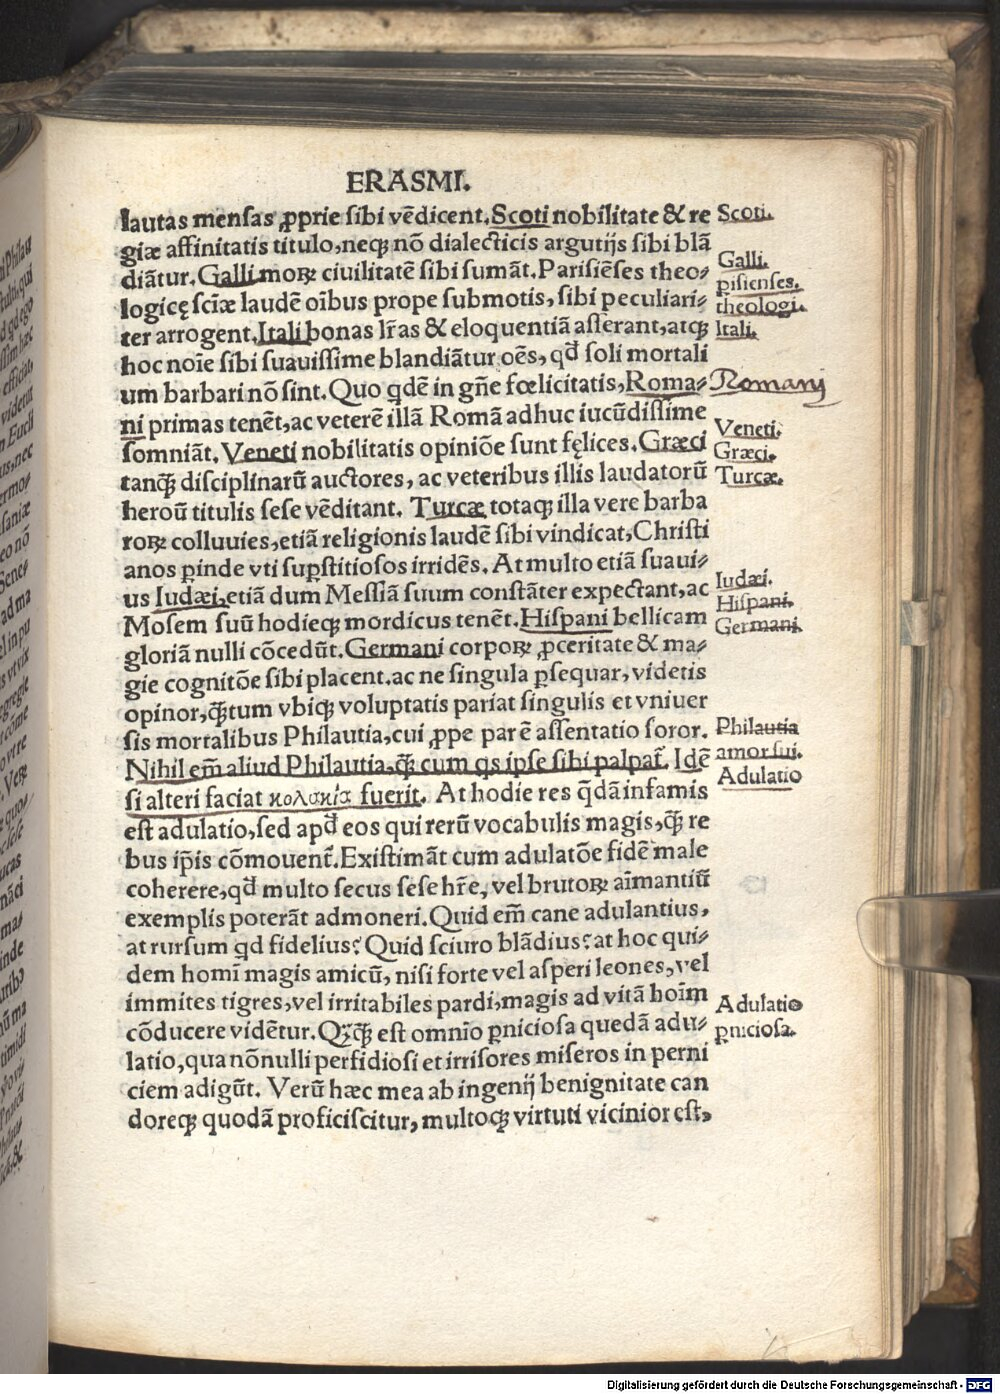 ERASMI.
lautas mensas ꝓprie sibi vēdicent. Scoti nobilitate & re
giæ affinitatis titulo, neqꝫ nō dialecticis argutijs sibi blā
diātur. Galli moꝝ ciuilitatē sibi sumāt. Parisiēses theo⸗
logicę sciæ laudē oībus prope submotis, sibi peculiari⸗
ter arrogent. Itali bonas lr̄as & eloquentiā asserant, atqꝫ
hoc noīe sibi suauissime blandiātur oēs, qđ soli mortali
um barbari nō sint. Quo qdē in gn̄e fœlicitatis, Roma⸗
ni primas tenēt, ac veterē illā Romā adhuc iucūdissime
somniāt. Veneti nobilitatis opiniōe sunt fęlices. Græci
tanqꝫ̄ disciplinarū auctores, ac veteribus illis laudatorū
heroū titulis sese vēditant. Turcæ totaqꝫ illa vere barba
roꝝ colluuies, etiā religionis laudē sibi vindicat, Christi
anos ꝑinde vti suꝑstitiosos irridēs. At multo etiā suaui⸗
us Iudæi, etiā dum Messiā suum constāter expectant, ac
Mosem suū hodieqꝫ mordicus tenēt. Hispani bellicam
gloriā nulli cōcedūt. Germani corpoꝝ ꝓceritate & ma⸗
gie cognitōe sibi placent. ac ne singula ꝑsequar, videtis
opinor, qꝫ̄tum vbiqꝫ voluptatis pariat singulis et vniuer
sis mortalibus Philautia, cui ꝓpe par ē assentatio soror.
Nihil em̄ aliud Philautia, qꝫ̄ cum qs ipse sibi palpat̄. Idē
si alteri faciat κολακία fuerit. At hodie res qdā infamis
est adulatio, sed apđ eos qui rerū vocabulis magis, qꝫ̄ re
bus ip̄is cōmouent̄. Existimāt cum adulatōe fidē male
coherere, qđ multo secus sese hr̄e, vel brutoꝝ aīmantiū
exemplis poterāt admoneri. Quid em̄ cane adulantius,
at rursum qd fidelius? Quid sciuro blādius? at hoc qui⸗
dem homī magis amicū, nisi forte vel asperi leones, vel
immites tigres, vel irritabiles pardi, magis ad vitā hoīm
cōducere vidētur. Qꝫqꝫ̄ est omnīo ꝑniciosa quedā adu⸗
latio, qua nōnulli perfidiosi et irrisores miseros in perni
ciem adigūt. Verū hæc mea ab ingenij benignitate can
doreqꝫ quodā proficiscitur, multoqꝫ virtuti vicinior est,
Scoti.
Galli.
pisienses.
theologi.
Itali.
Romanj
Veneti.
Græci.
Turcæ.
Iudæi.
Hispani.
Germani.
Philautia
amor sui.
Adulatio
Adulatio
ꝑniciosa.
Digitalisierung gefördert durch die Deutsche Forschungsgemeinschaft - DFG